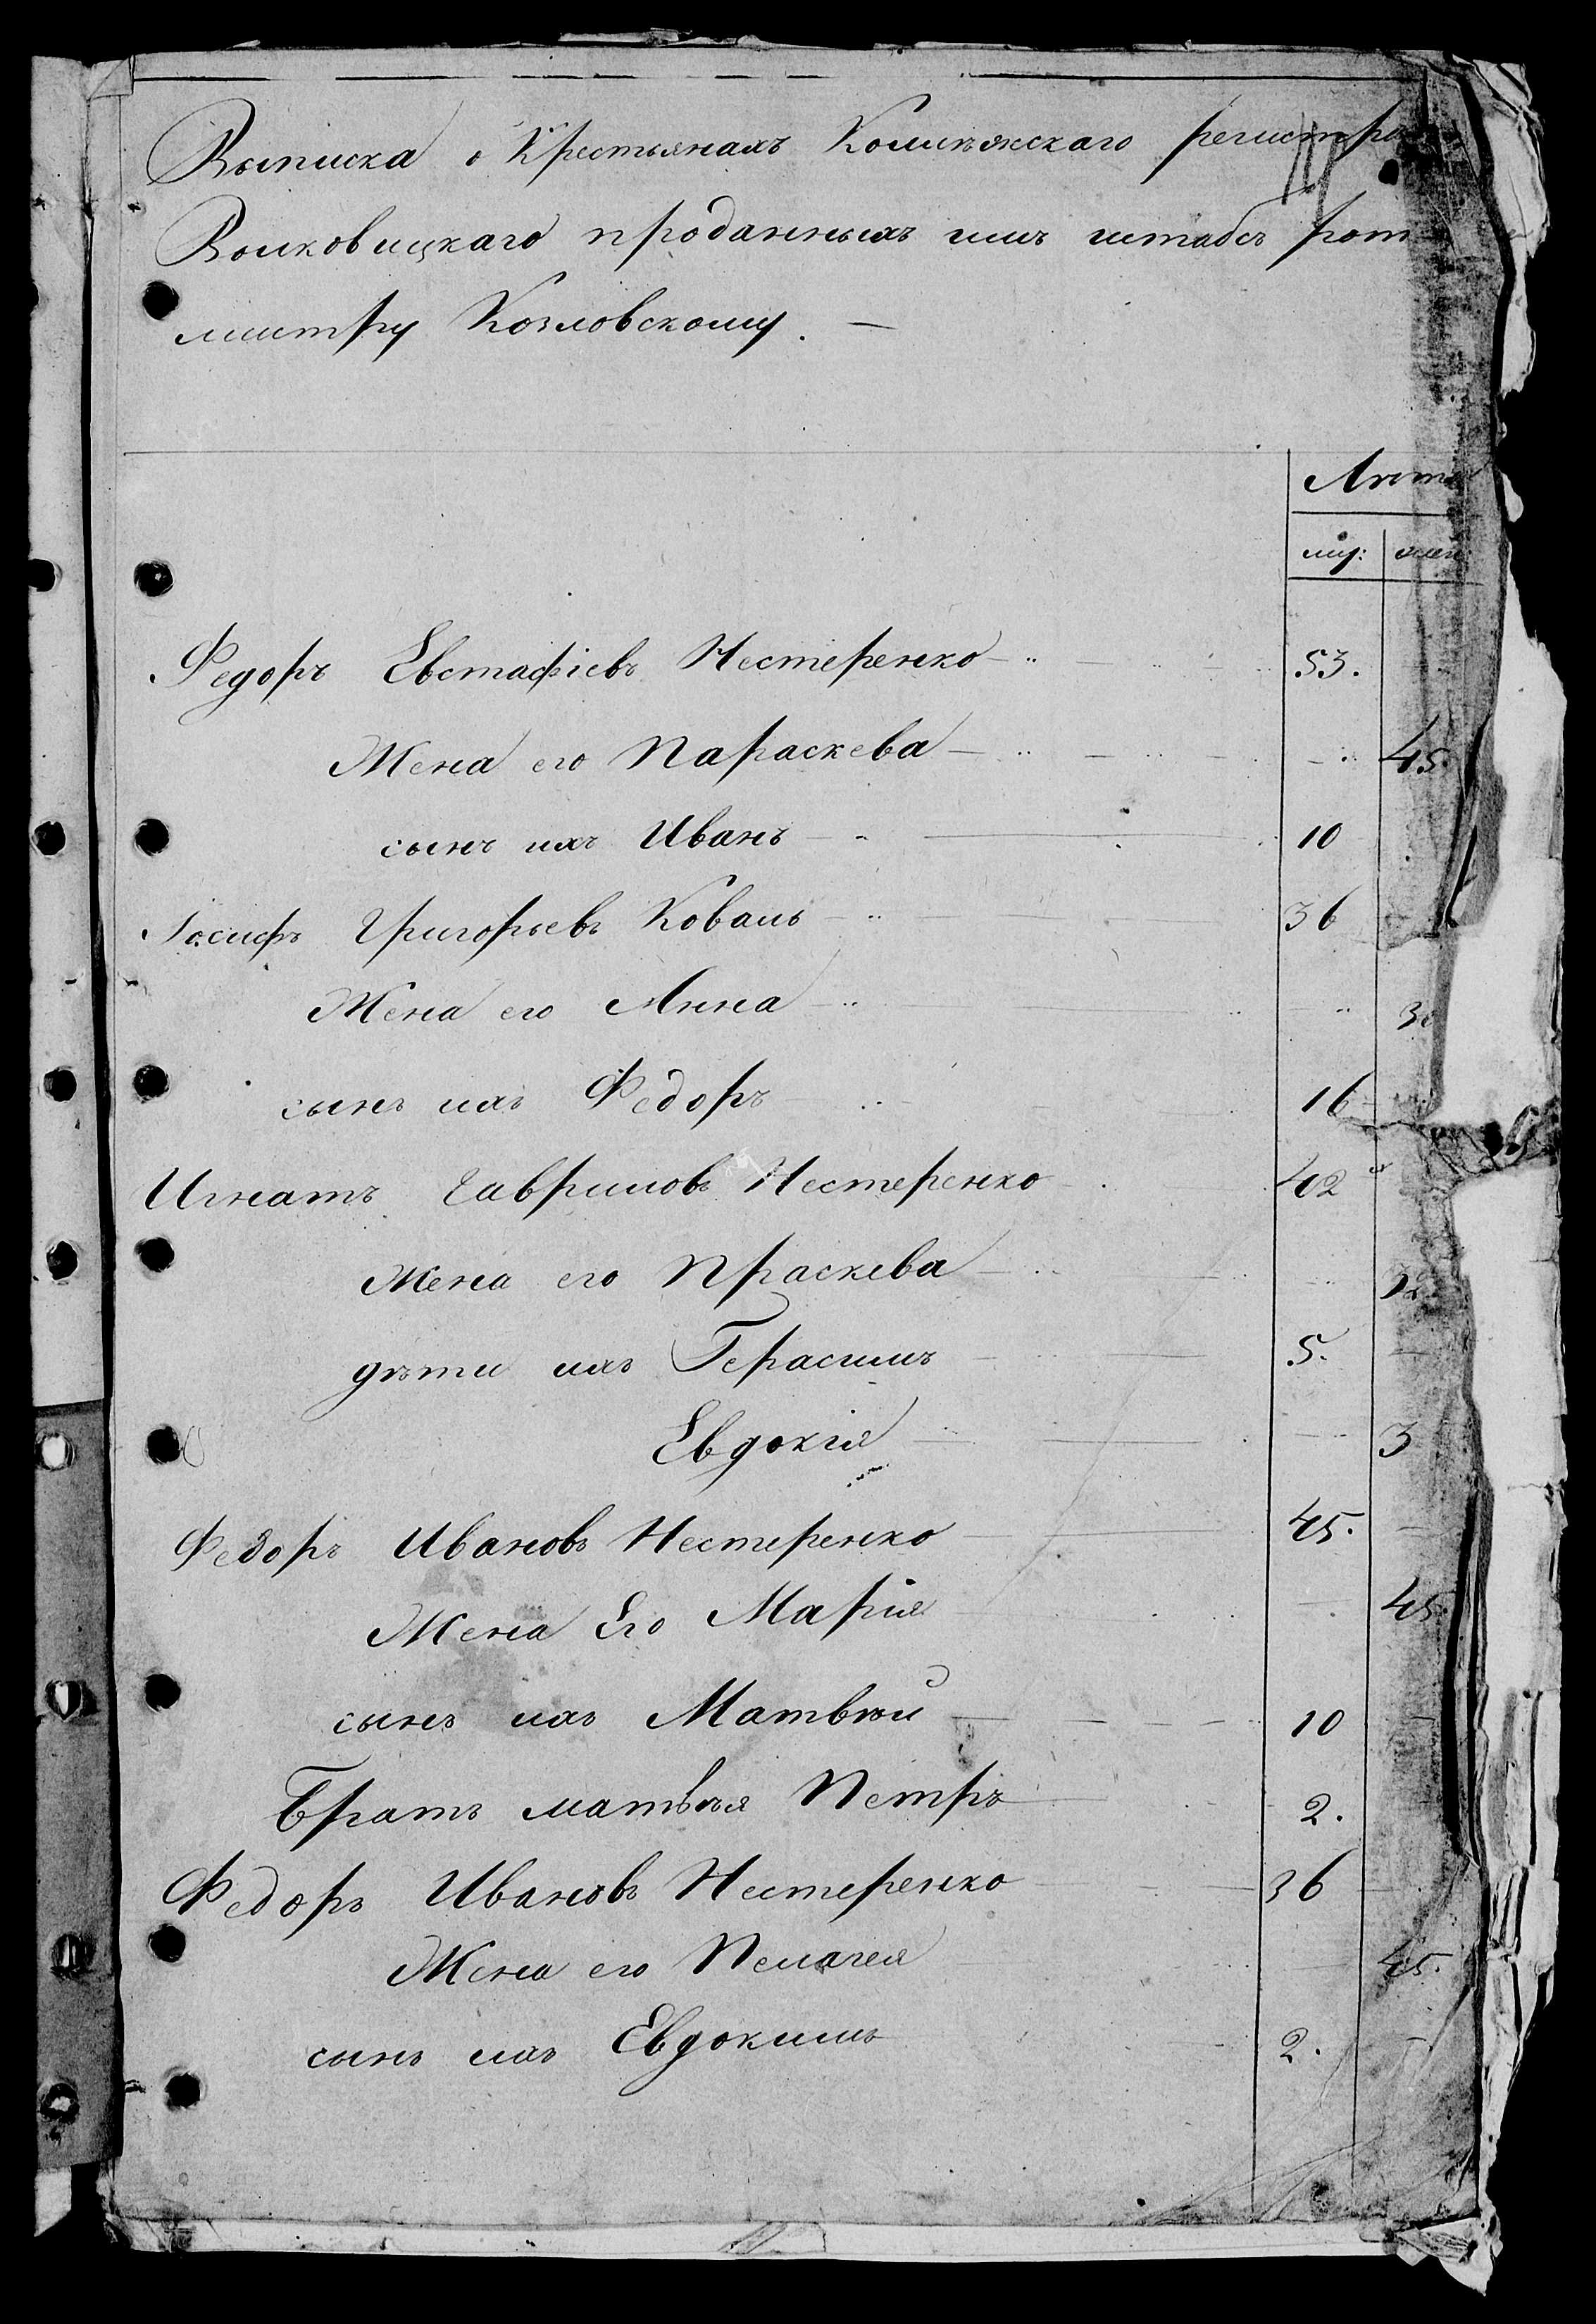 Выписка о Крестьянахъ Колежскаго регистра
Волковицкаго проданныхъ имъ штабсъ рот
мистру Козловскому. —
Лѣта
муж: жен:
Федоръ Евстафіевъ Нестеренко 53.
Жена его Параскева 45.
сынъ ихъ Иванъ 10
Іосифъ Григорьевъ Коваль 36
Жена его Анна 30
сынъ ихъ Федоръ 16
Игнатъ Гавриловъ Нестеренко 42
Жена его Праскева 32
дѣти ихъ Герасимъ 5.
Евдокія 3
Федоръ Ивановъ Нестеренко 45.
Жена Его Марія 45.
сынъ ихъ Матвѣй 10
Братъ матвѣя Петръ 2.
Федоръ Ивановъ Нестеренко 36
Жена его Пелагея 45.
сынъ ихъ Евдокимъ 2.